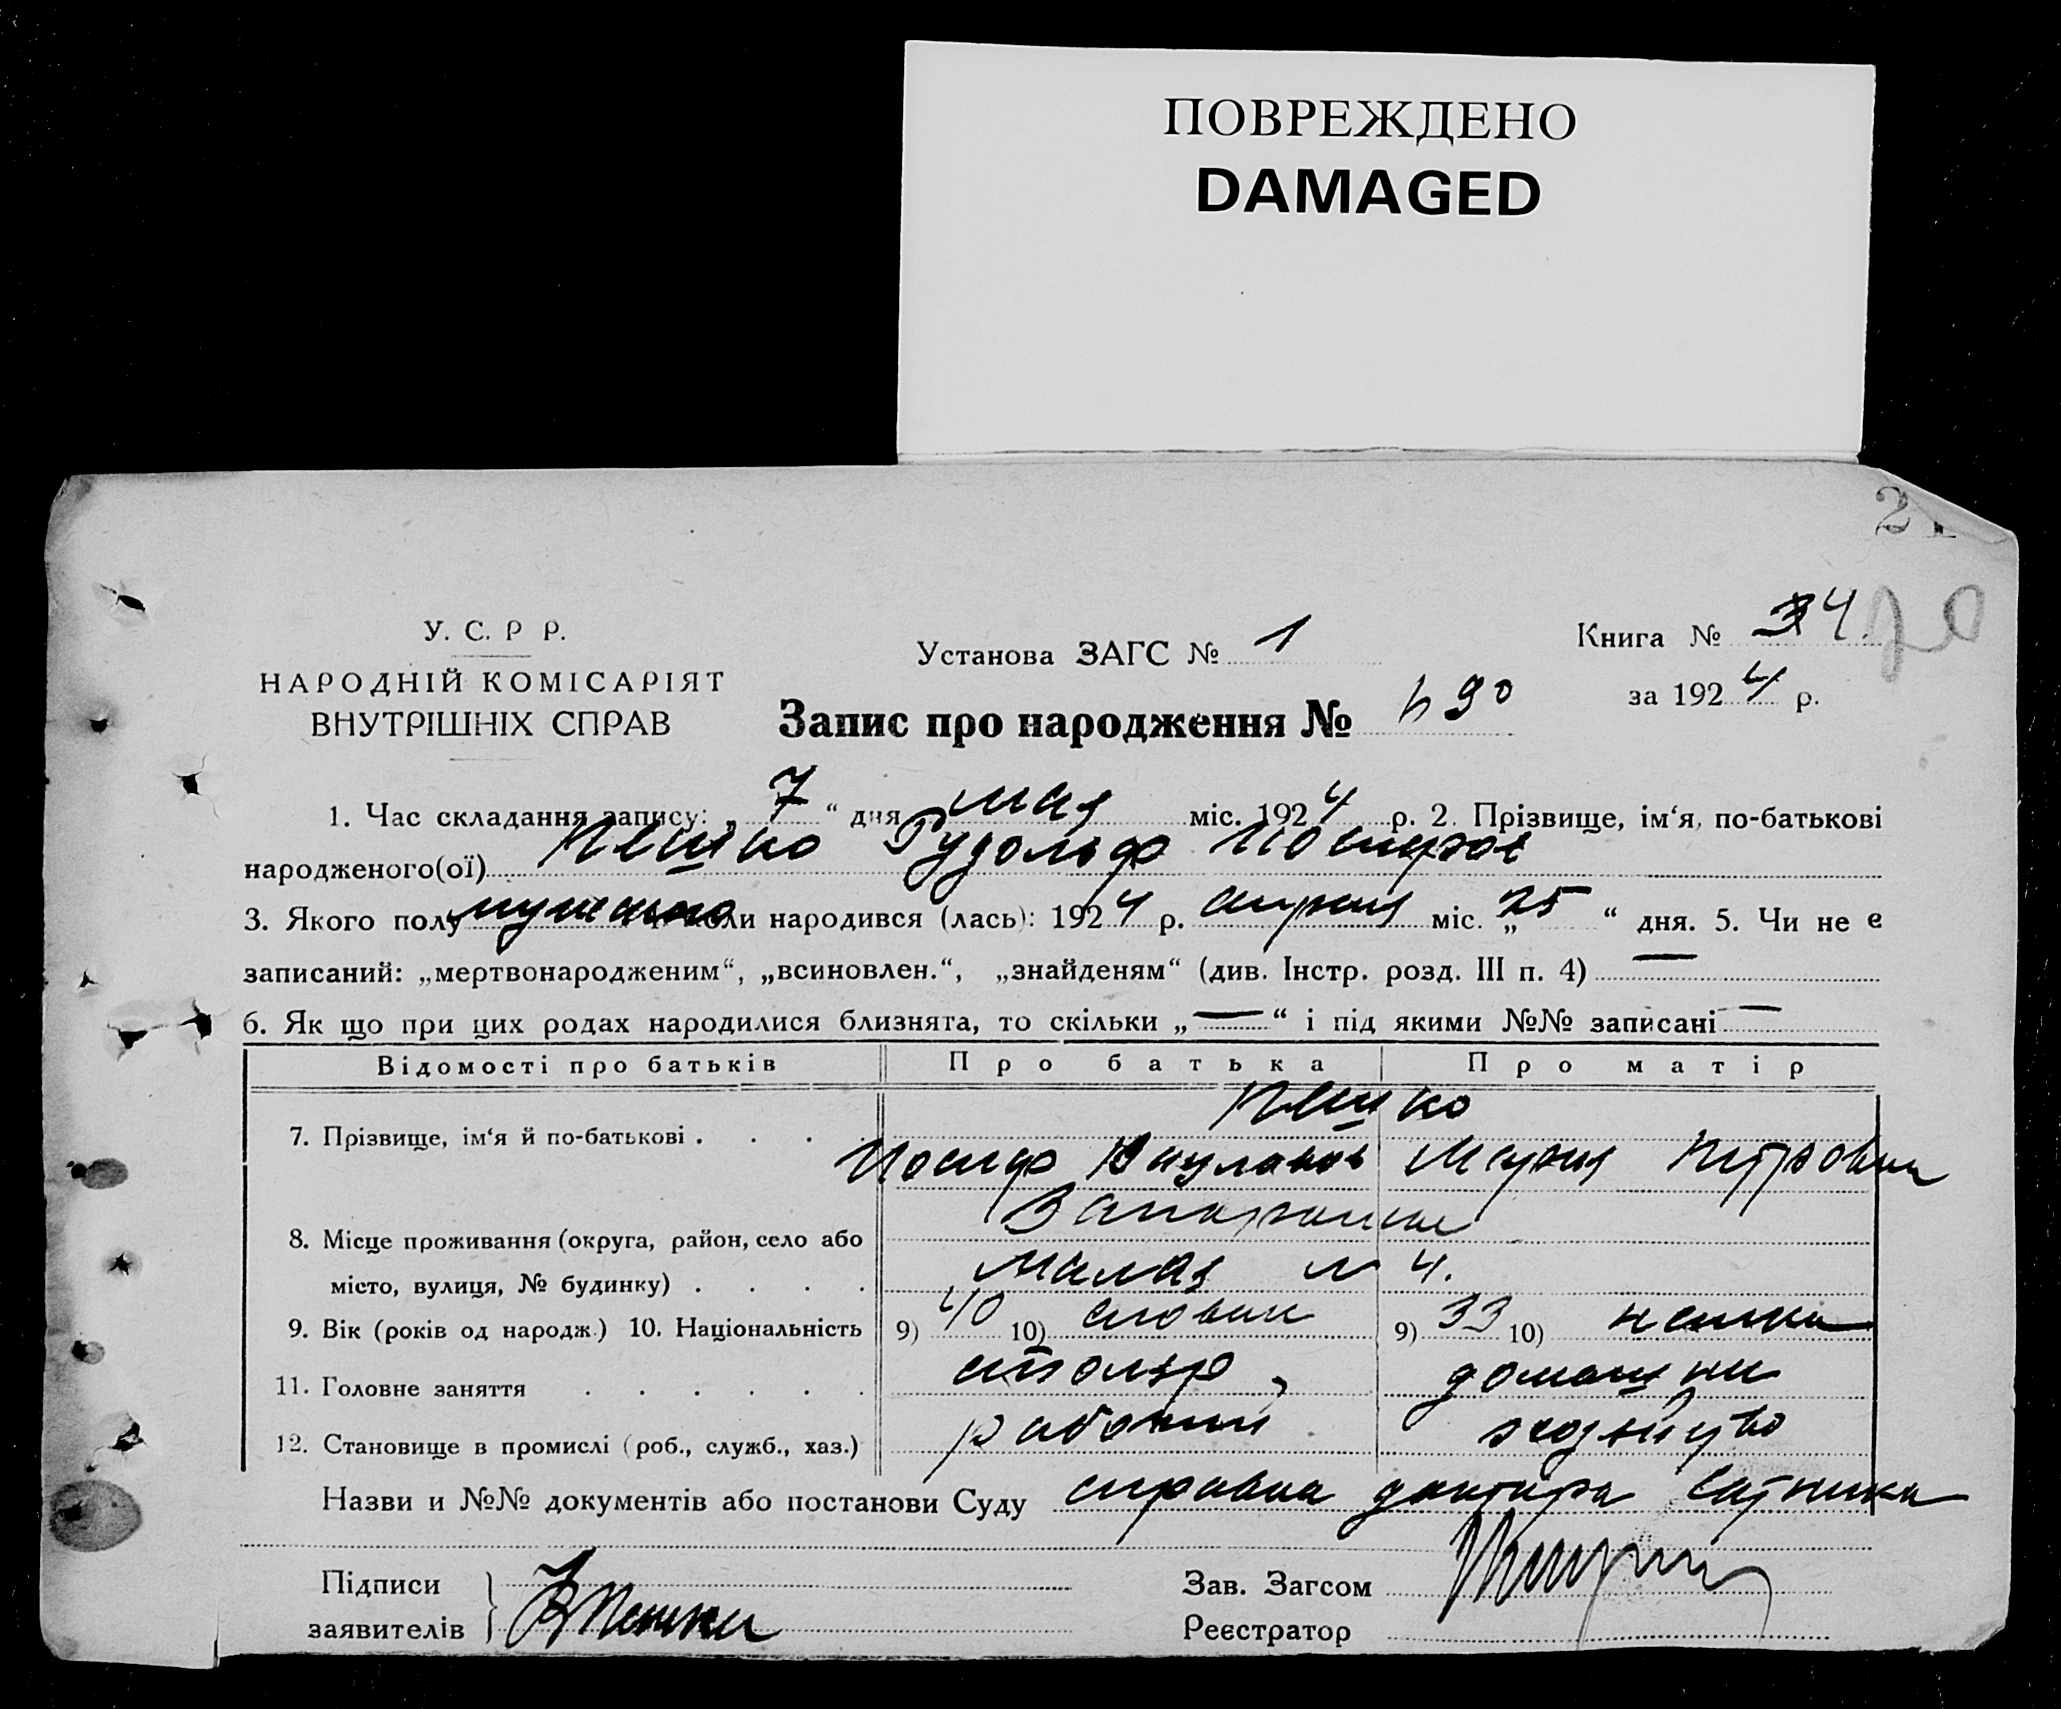 ПОВРЕЖДЕНО
DAMAGED
20
У. С. Р Р.
НАРОДНІЙ КОМІСАРІЯТ
ВНУТРІШНІХ СПРАВ
Установа ЗАГС № 1
Книга № 34
за 1924 р.
Запис про народження № 490
1. Час складання запису: „7“ дня мая міс. 1924 р. 2. Прізвище, ім‘я, по-батькові
народженого(ої) Пешко Рудольф
3. Якого полу мужского коли народився (лась): 1924 р. апреля міс. „25“ дня. 5. Чи не є
записаний: „мертвонародженим“, „всиновлен.“, „знайденям“ (див. Інстр. розд. III п. 4) —
6. Як що при цих родах народилися близнята, то скільки „—“ і під якими №№ записані —
Відомості про батьків Про батька Про матір
Пешко
7. Прізвище, ім‘я й по-батькові . . . . Иосиф Мария Петровна
8. Місце проживання (округа, район, село або
місто, вулиця, № будинку) . . . . Малая № 4.
9. Вік (років од народж.) 10. Національність 9) 40 10) словак 9) 33 10) немка
11. Головне заняття . . . . . . столяр, домашнее
12. Становище в промислі (роб., служб., хаз.) рабочий хозяйство
Назви и №№ документів або постанови Суду справка доктора
Підписи
заявителів
Зав. Загсом
Реєстратор